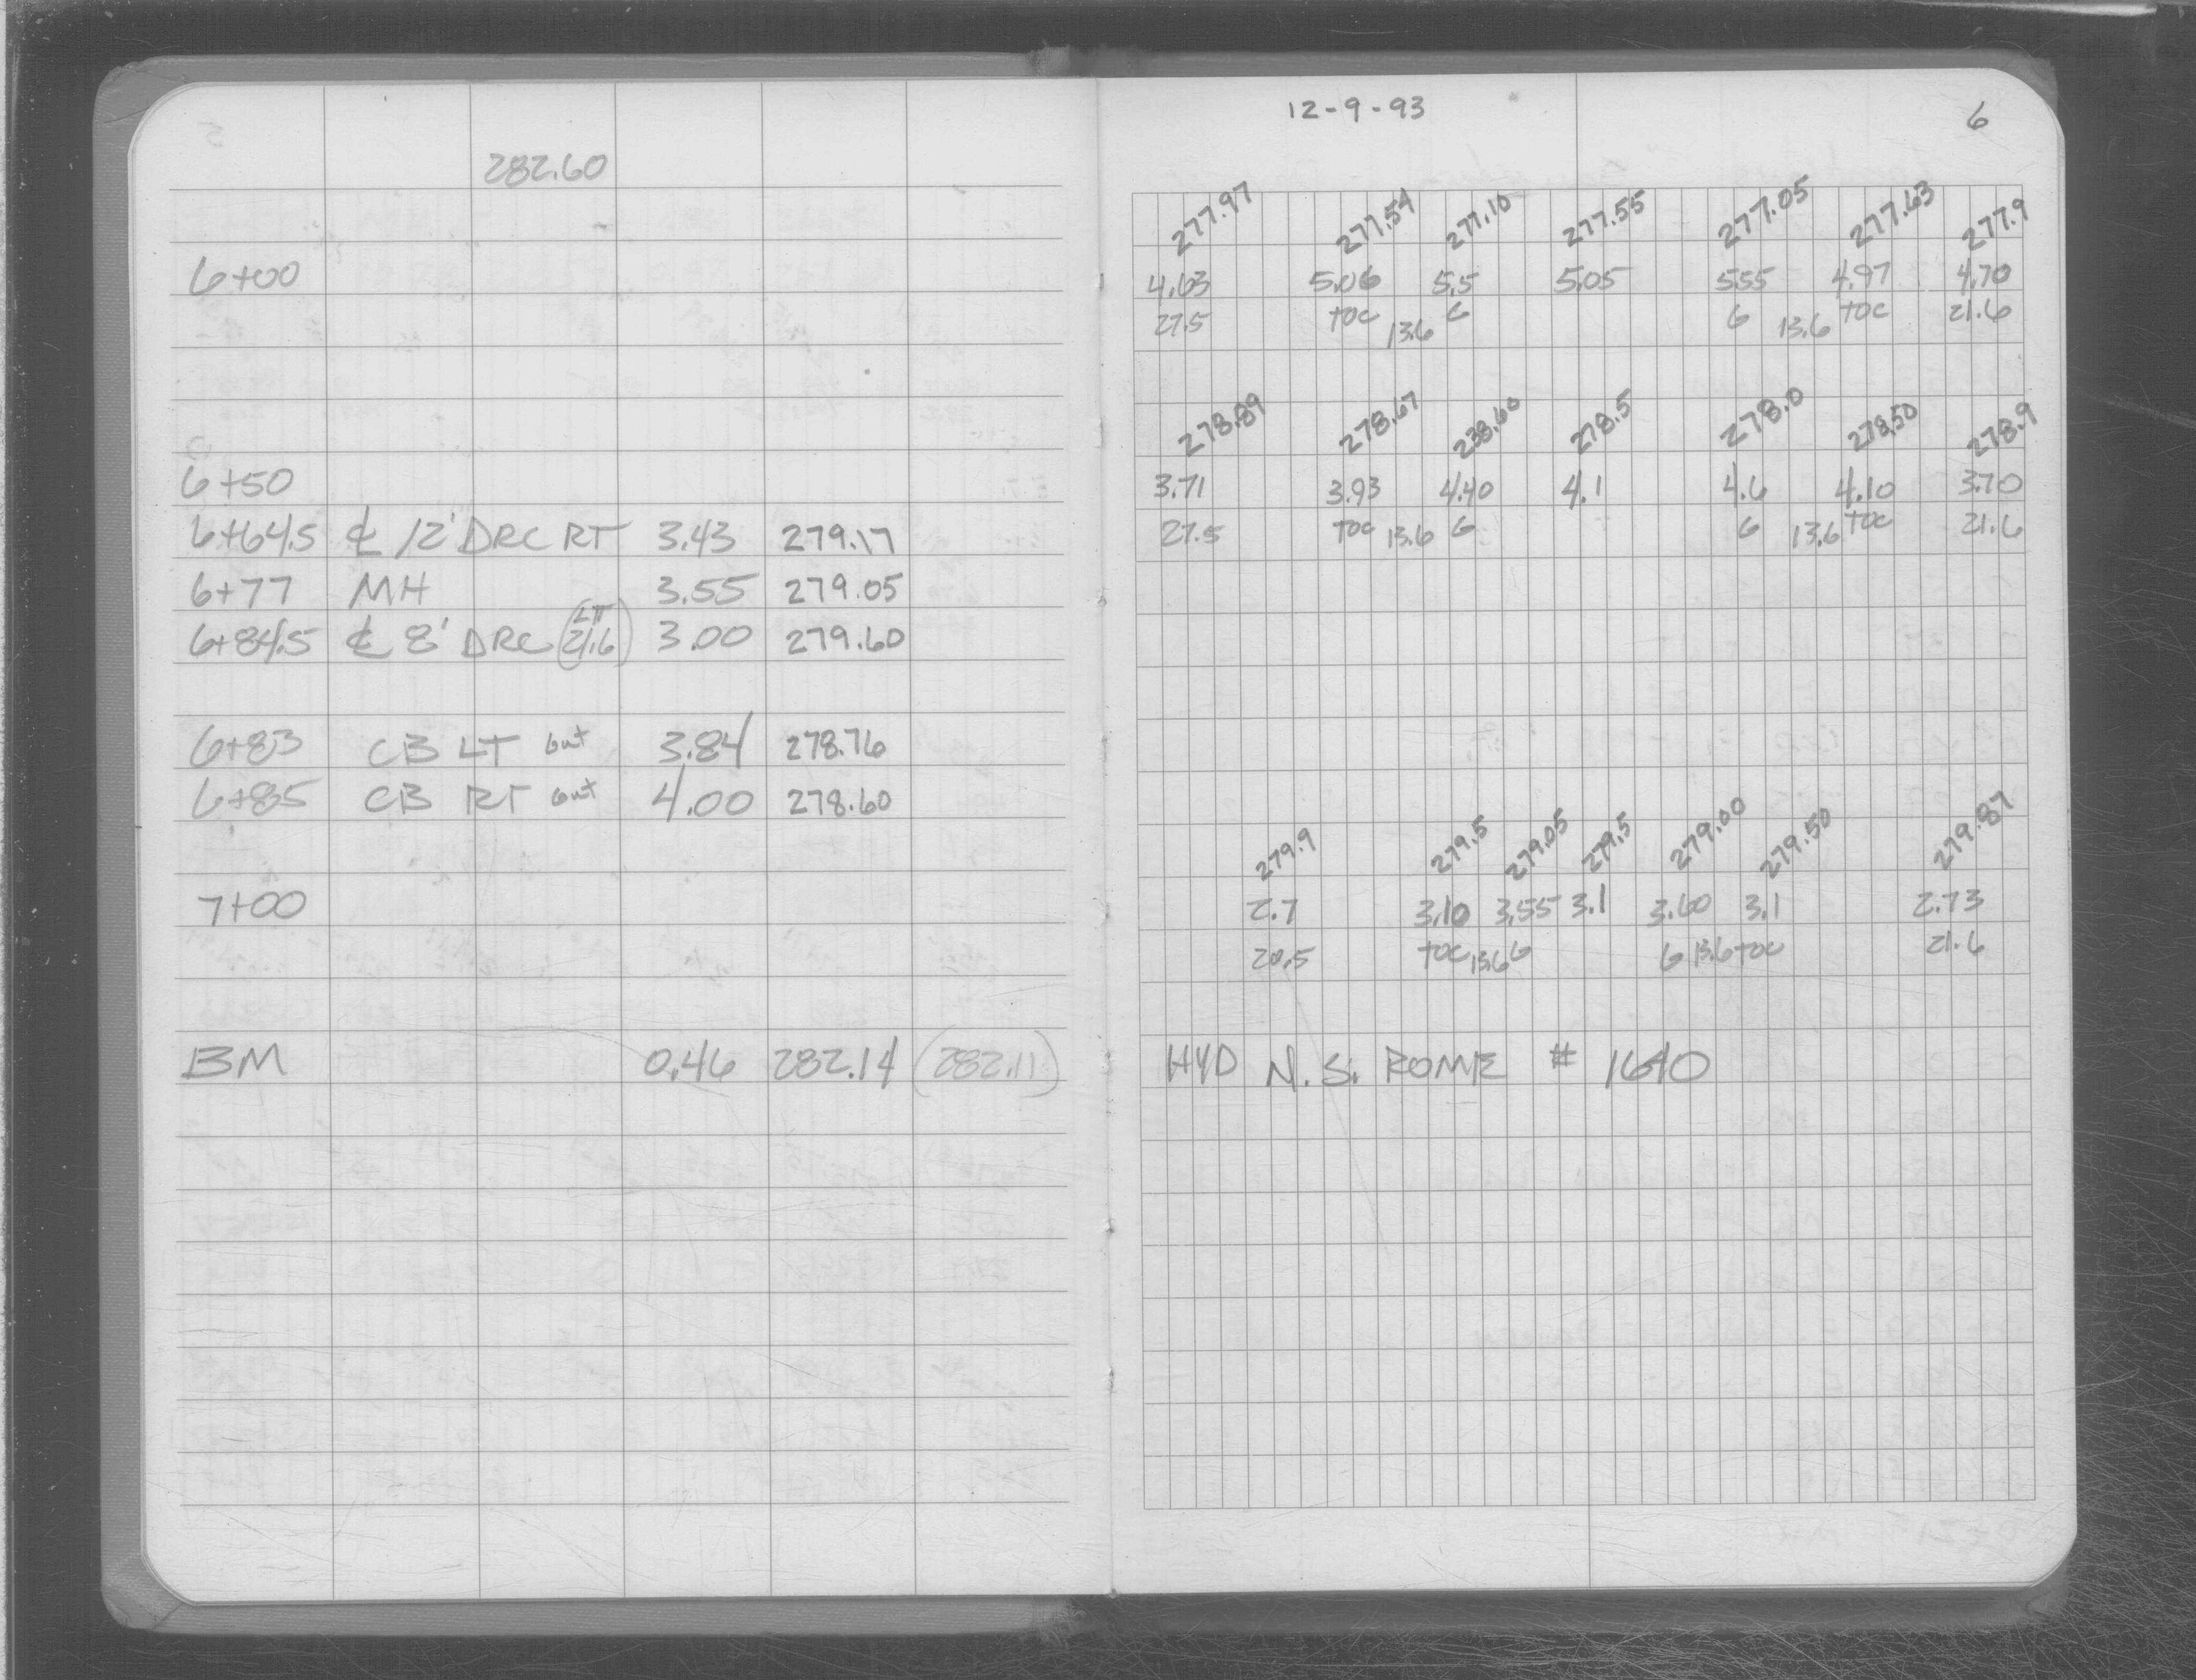 282.60
6+00
6+50
6+64.5 ℄ 12' DRC RT 3.43 279.17
6+77 MH 3.55 279.05
6+84.5 ℄ 8' DRC (LT 21.6) 3.00 279.60
6+83 CB LT Gut 3.84 278.76
6+85 CB RT Gut 4.00 278.60
7+00
BM 0.46 282.14 (282.11)
12-9-93 6
277.97 277.54 277.10 277.55 277.05 277.63 277.9
4.63 5.06 5.5 5.05 5.55 4.97 4.70
27.5 TOC 13.6 G G 13.6 TOC 21.6
278.89 278.67 238.60 278.5 278.0 278.50 278.9
3.71 3.93 4.40 4.1 4.6 4.10 3.70
27.5 TOC 13.6 G G 13.6 TOC 21.6
279.9 279.5 279.05 279.5 279.00 279.50 279.87
2.7 3.10 3.55 3.1 3.60 3.1 2.73
20.5 TOC 13.6 G G 13.6 TOC 21.6
HYD N.S. ROME # 1640